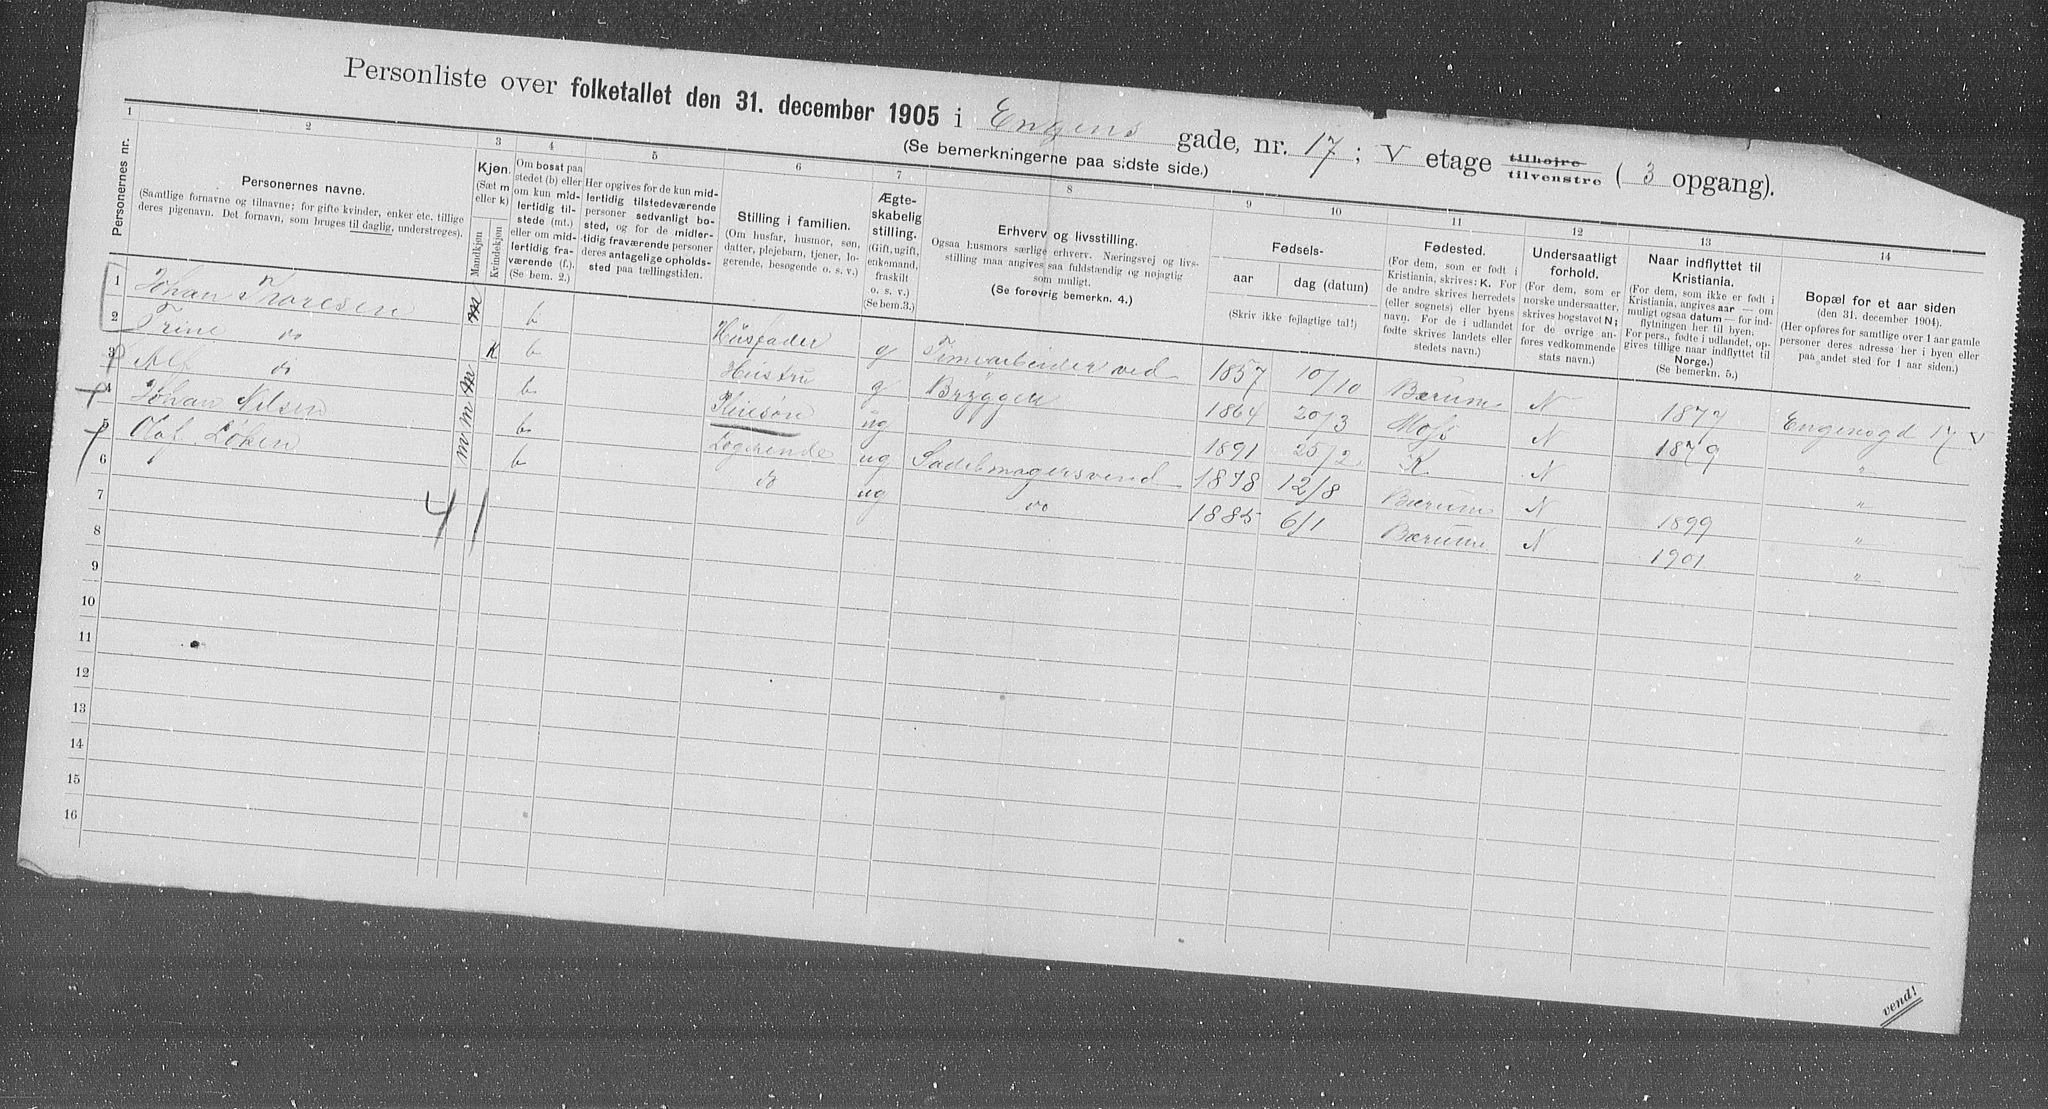 Personliste over folketallet den 31. december 1905 i Engens gade, nr. 17; V etage tilhøjre tilvenstre (3 opgang).
(Se bemerkningerne paa sidste side.)
1 2 3 4 5 6 7 8 9 10 11 12 13 14
Personernes nr.
Personernes navne.
(Samtlige fornavne og tilnavne; for gifte kvinder, enker etc. tillige
deres pigenavn. Det fornavn, som bruges til daglig, understreges).
Kjøn.
(Sæt m
eller k)
Mandkjøn
Kvindekjøn
Om bosat paa
stedet (b) eller
om kun mid-
lertidig til-
stede (mt.)
eller om mid-
lertidig fra-
værende (f.).
(Se bem. 2.)
Her opgives for de kun mid-
lertidig tilstedeværende
personer sedvanligt bo-
sted, og for de midler-
tidig fraværende personer
deres antagelige opholds-
sted paa tællingstiden.
Stilling i familien.
(Om husfar, husmor, søn,
datter, plejebarn, tjener, lo-
gerende, besøgende o. s. v.)
Ægte-
skabelig
stilling.
(Gift, ugift,
enkemand,
fraskilt
o. s. v.)
(Se bem.3.)
Erhverv og livsstilling.
Ogsaa husmors særlige erhverv. Næringsvej og livs-
stilling maa angives saa fuldstændig og nøjagtig
som muligt.
(Se forøvrig bemerkn. 4.)
Fødsels-
aar
dag (datum)
(Skriv ikke fejlagtige tal!)
Fødested.
(For dem, som er født i
Kristiania, skrives: K. For
de andre skrives herredets
(eller sognets) eller byens
navn. For de i udlandet
fødte skrives landets eller
stedets navn.)
Undersaatligt
forhold.
(For dem, som er
norske undersaatter,
skrives bogstavet N;
for de øvrige an-
føres vedkommende
stats navn.)
Naar indflyttet til
Kristiania.
(For dem, som ikke er født i
Kristiania, angives aar — om
muligt ogsaa datum — for ind-
flytningen her til byen;
For pers., fødte i udlandet, op-
gives tillige naar indflyttet til
Norge.)
(Se bemerkn. 5.)
Bopæl for et aar siden
(den 31. december 1904).
(Her opføres for samtlige over 1 aar gamle
personer deres adresse her i byen eller
paa andet sted for 1 aar siden.)
1 Johan Thoresen m b Husfader g Timearbeider ved 1857 10/10 Bærum N 1877 Engensgd 17 V
2 Trine do K b Hustru g Bryggen 1864 20/3 Moss N 1879 "
3 Alf do m b Pleiesøn ug 1891 25/2 K N "
4 Johan Nilsen m b Logerende ug Sadelmagersvend 1878 12/8 Bærum N 1899 "
5 Olaf Løken m b do ug do 1885 6/1 Bærum N 1901 "
6 4 1
7
8
9
10
11
12
13
14
15
16
vend!